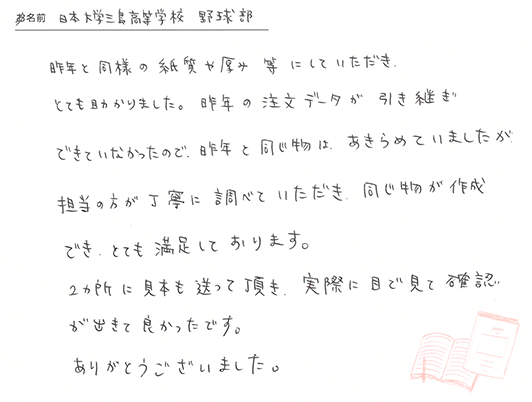 お名前 日本大学三島高等学校 野球部
昨年と同様の紙質や厚み等にしていただき、
とても助かりました。昨年の注文データが引き継ぎ
できていなかったので、昨年と同じ物は、あきらめていましたが
担当の方が丁寧に調べていただき、同じ物が作成
でき、とても満足しております。
2カ所に見本も送って頂き、実際に目で見て確認
が出きて良かったです。
ありがとうございました。